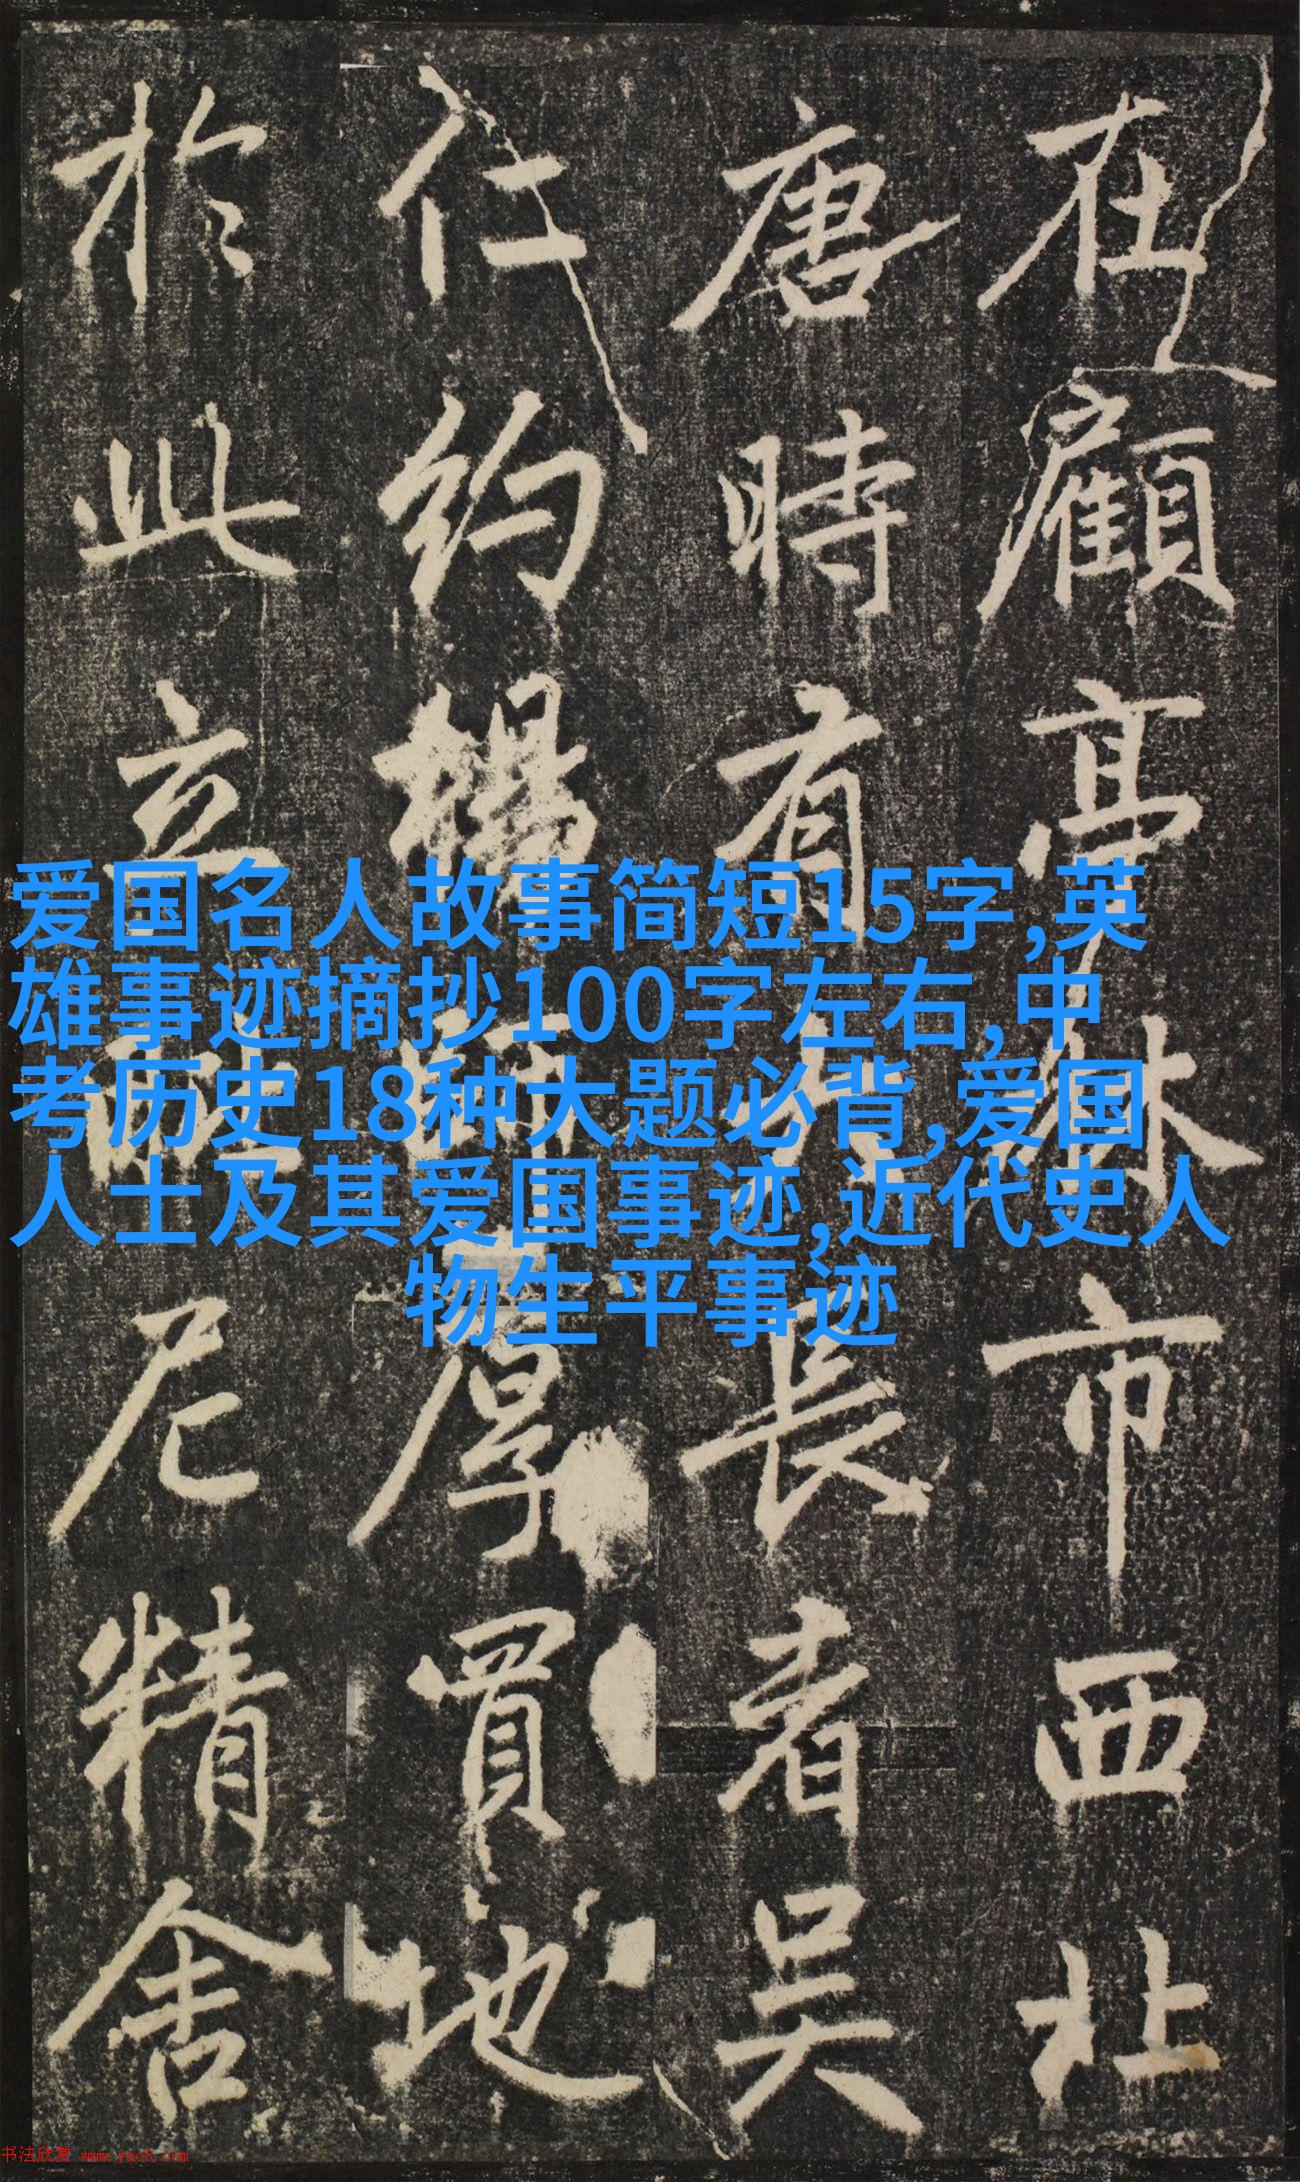 在顧亭林市西北
唐時有長者吳
仁約厚買地
於此立尼精舍
爱国名人故事简短15字,英
雄事迹摘抄100字左右,中
考历史18种大题必背,爱国
人士及其爱国事迹,近代史人
物生平事迹
书法欣赏 www.yac8.com